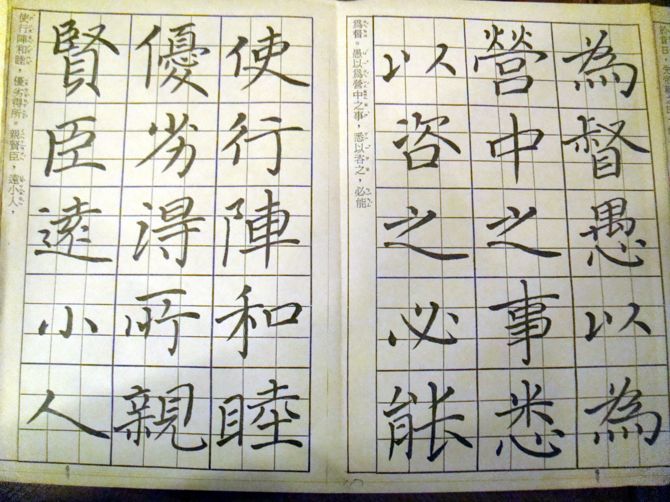 為督愚以為
營中之事悉
以咨之必能
爲督。愚以爲營中之事，悉以咨之，必能
使行陣和睦
優劣得所親
賢臣遠小人
使行陣和睦，優劣得所。親賢臣，遠小人，